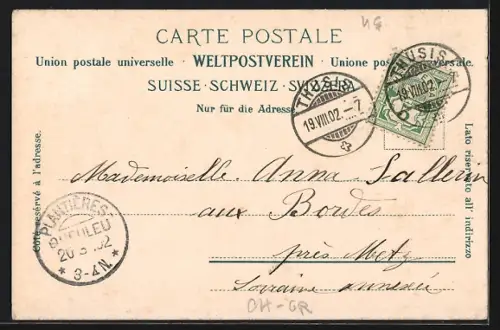 CARTE POSTALE
Union postale universelle · WELTPOSTVEREIN · Unione postale universale.
SUISSE · SCHWEIZ · SVIZZERA
Nur für die Adresse
THUSIS
19.VIII.02.-7
THUSIS
19.VIII.02.
5
Côté réservé à l'adresse.
Lato riservato all' indirizzo
Mademoiselle Anna Sallerin
aux Bordes
près Metz
Lorraine annexée
PLANTIÈRES-
QUEULEU
20 8 02
* 3-4N. *
CH-GR